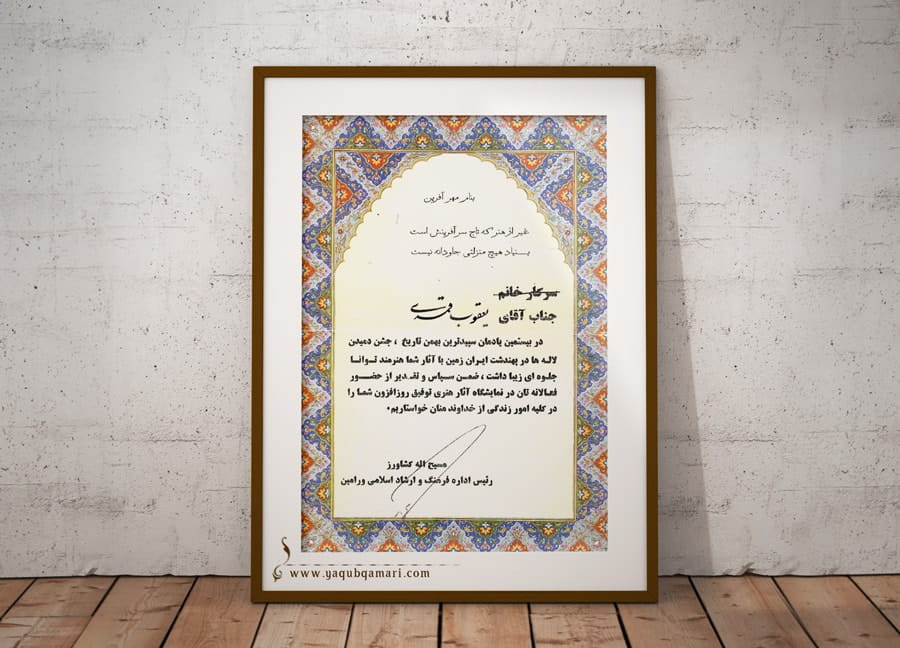 بنام مهر آفرین
غیر از هنر که تاج سر آفرینش است
بنیاد هیچ منزلتی جاودانه نیست
سرکار خانم
جناب آقای یعقوب قمری
در بیستمین یادمان سپیدترین بهمن تاریخ ، جشن دمیدن
لاله ها در پهندشت ایران زمین با آثار شما هنرمند توانا
جلوه ای زیبا داشت ، ضمن سپاس و تقدیر از حضور
فعالانه تان در نمایشگاه آثار هنری توفیق روزافزون شما را
در کلیه امور زندگی از خداوند منان خواستاریم .
مسیح اله کشاورز
رئیس اداره فرهنگ و ارشاد اسلامی ورامین
www.yaqubqamari.com